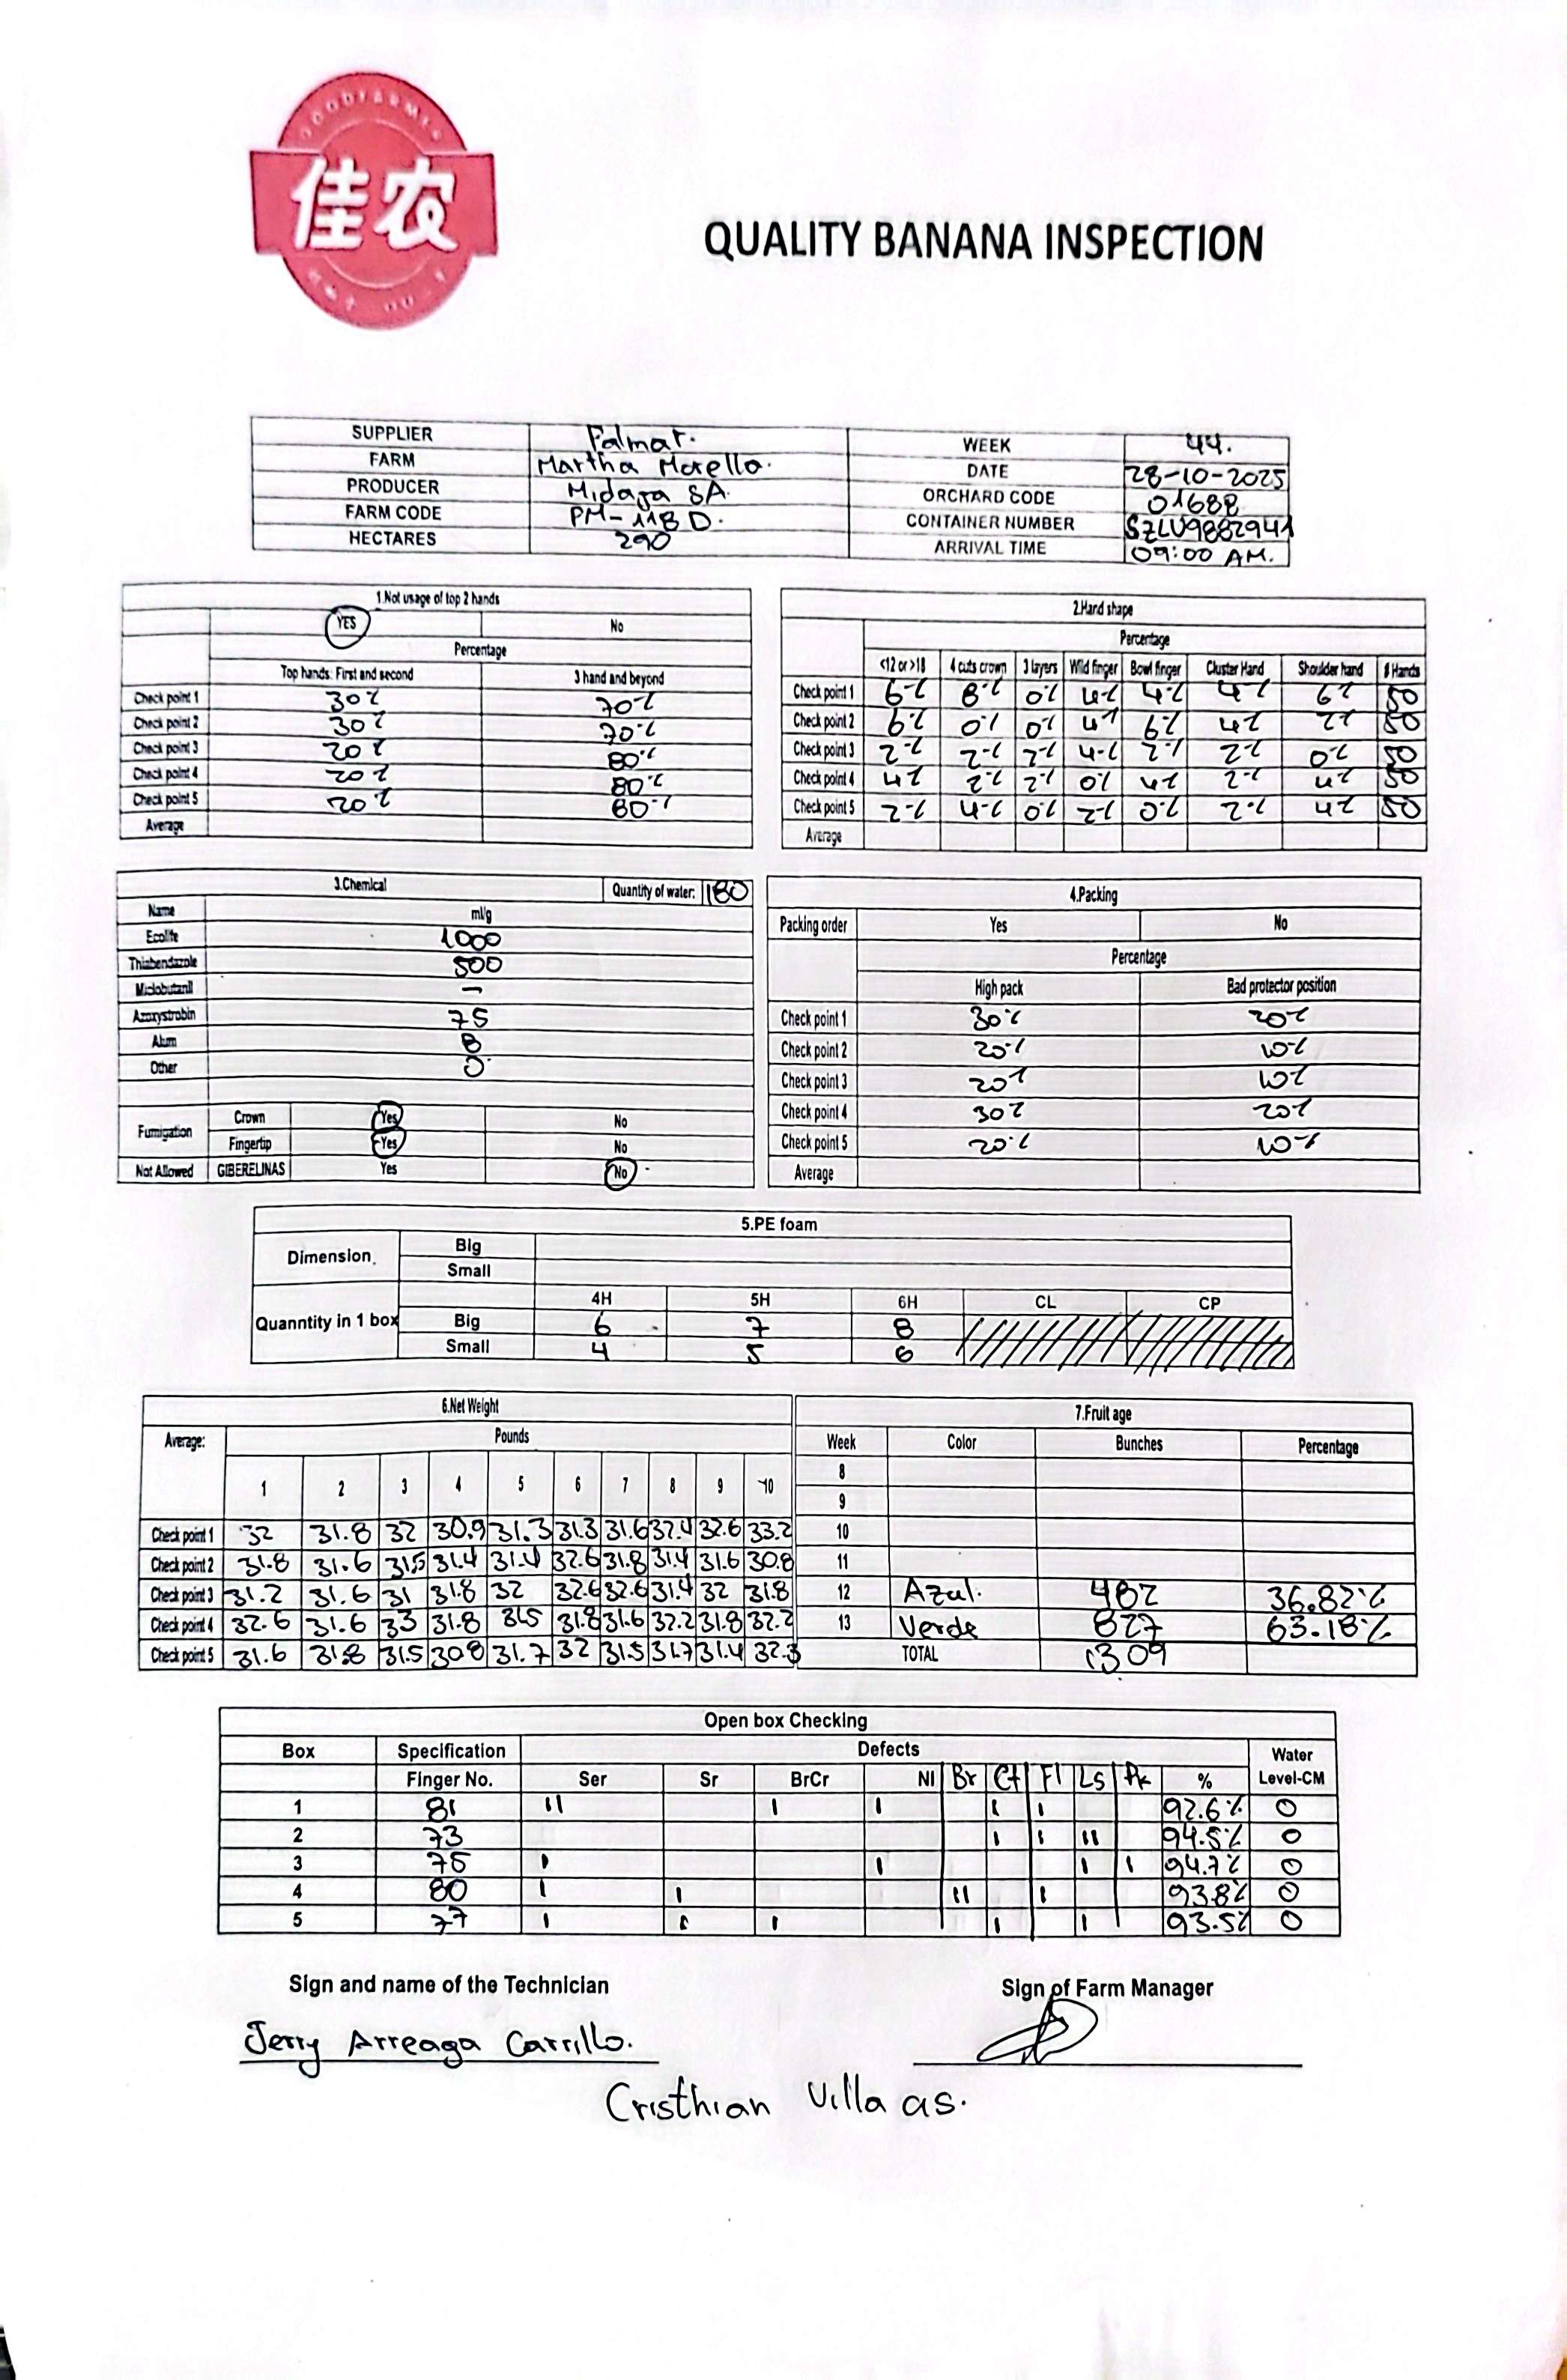 GOODFARMER
佳农
QUALITY BANANA INSPECTION
SUPPLIER Palmar. WEEK 44.
FARM Martha Morella. DATE 28-10-2025
PRODUCER Midaja SA. ORCHARD CODE 01688
FARM CODE PM-118 D. CONTAINER NUMBER SZLU9882941
HECTARES 290 ARRIVAL TIME 09:00 AM.
1.Not usage of top 2 hands
YES No
Percentage
Top hands: First and second 3 hand and beyond
Check point 1 30% 70%
Check point 2 30% 70%
Check point 3 20% 80%
Check point 4 20% 80%
Check point 5 20% 80%
Average
2.Hard shape
Percentage
<12 or >18 4 cuts crown 3 layers Wild finger Bowl finger Cluster Hand Shoulder hand # Hands
Check point 1 6% 8% 0% 4% 4% 4% 6% 50
Check point 2 6% 0% 0% 4% 6% 4% 2% 50
Check point 3 2% 2% 2% 4% 2% 2% 0% 50
Check point 4 4% 2% 2% 0% 4% 2% 4% 50
Check point 5 2% 4% 0% 2% 0% 2% 4% 50
Average
3.Chemical Quantity of water: 180
Name ml/g
Ecolite 1000
Thiabendazole 500
Miclobutanil -
Azoxystrobin 75
Alum 8
Other 0
Fumigation Crown Yes No
Fingertip Yes No
Not Allowed GIBERELINAS Yes No
4.Packing
Packing order Yes No
Percentage
High pack Bad protector position
Check point 1 30% 20%
Check point 2 20% 10%
Check point 3 20% 10%
Check point 4 30% 20%
Check point 5 20% 10%
Average
5.PE foam
Dimension Big
Small
4H 5H 6H CL CP
Quanntity in 1 box Big 6 7 8
Small 4 5 6
6.Net Weight
Average: Pounds
1 2 3 4 5 6 7 8 9 10
Check point 1 32 31.8 32 30.9 31.3 31.3 31.6 32.4 32.6 33.2
Check point 2 31.8 31.6 31.5 31.4 31.4 32.6 31.8 31.4 31.6 30.8
Check point 3 31.2 31.6 31 31.8 32 32.6 32.6 31.4 32 31.8
Check point 4 32.6 31.6 33 31.8 31.5 31.8 31.6 32.2 31.8 32.2
Check point 5 31.6 31.8 31.5 30.8 31.7 32 31.5 31.7 31.4 32.3
7.Fruit age
Week Color Bunches Percentage
8
9
10
11
12 Azul. 482 36.82%
13 Verde 827 63.18%
TOTAL 1309
Open box Checking
Box Specification Defects Water
Finger No. Ser Sr BrCr NI Br Ct Fl Ls Pk % Level-CM
1 81 11 1 1 1 1 92.6% 0
2 73 1 1 11 94.5% 0
3 75 1 1 1 1 94.7% 0
4 80 1 1 11 1 93.8% 0
5 77 1 1 1 1 1 93.5% 0
Sign and name of the Technician Sign of Farm Manager
Jerry Arreaga Carrillo.
Cristhian Villa as.